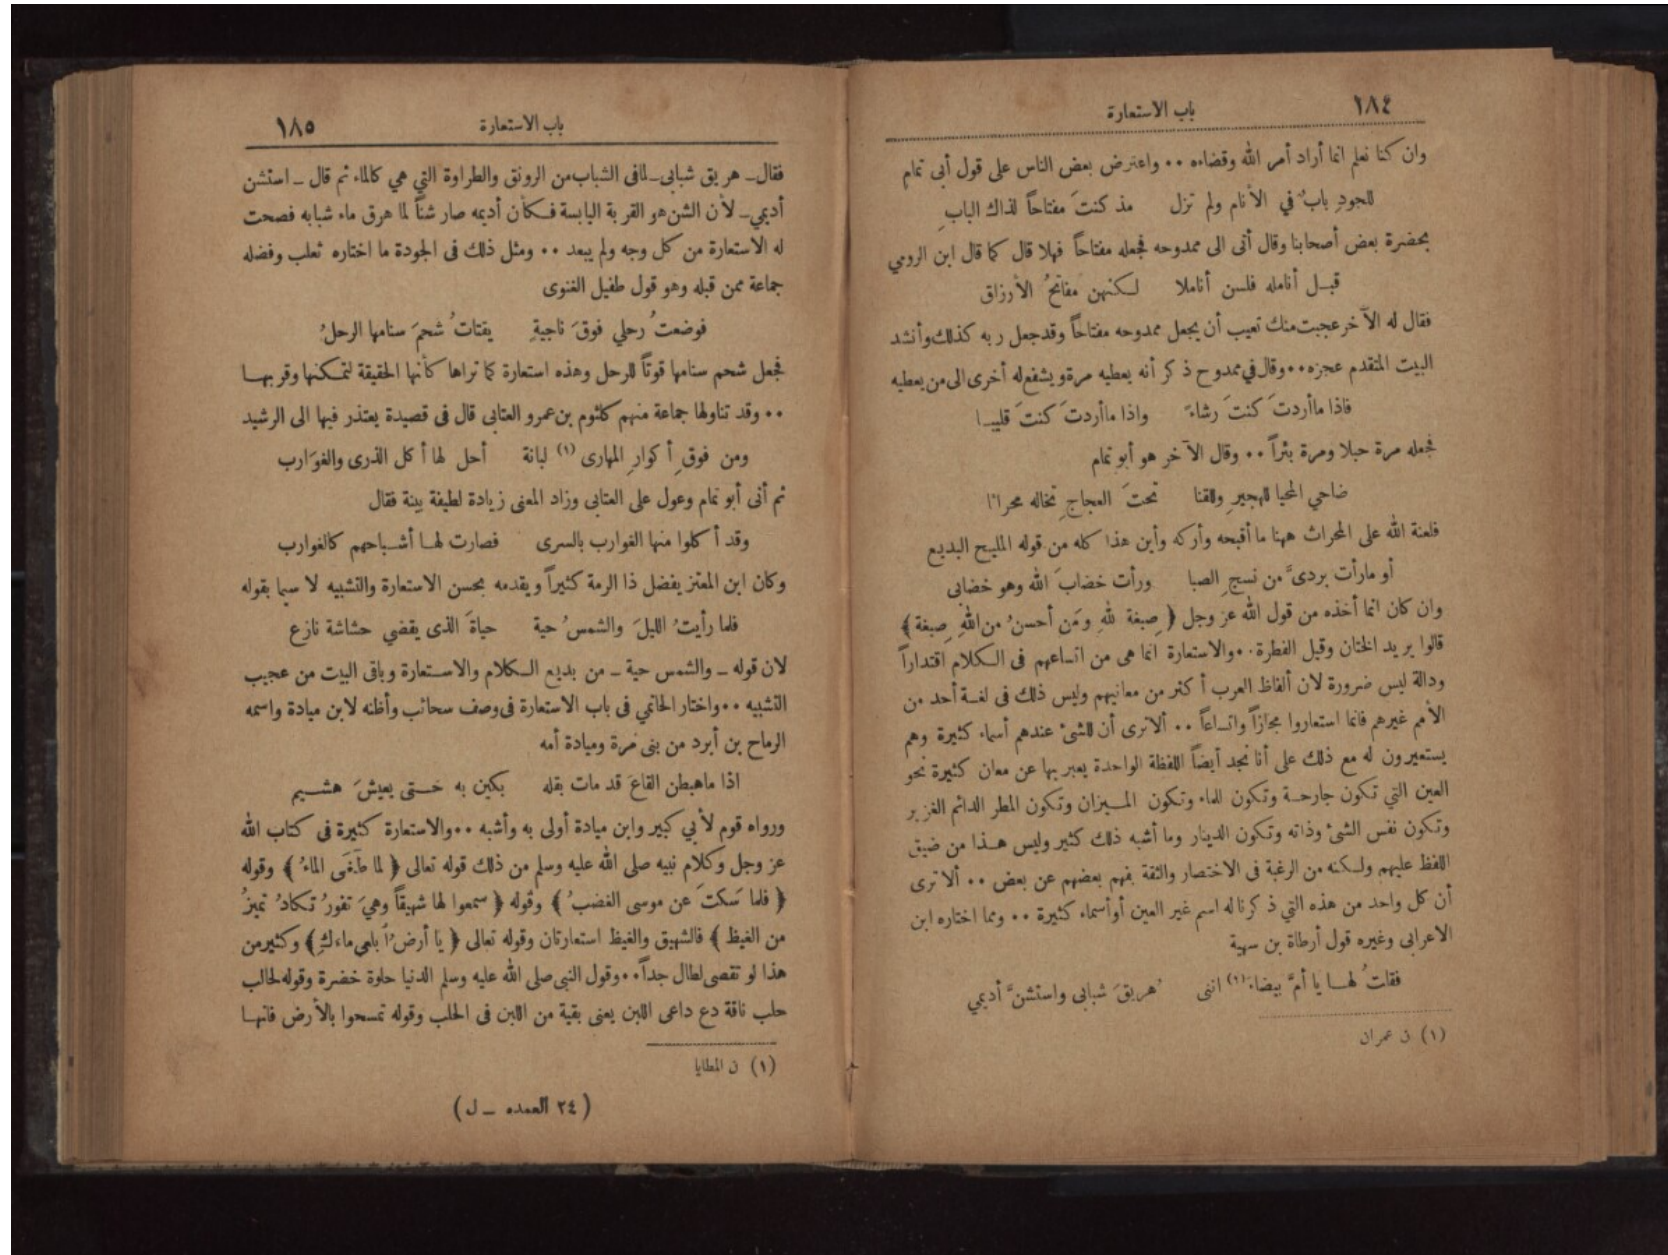 ١٨٤
باب الاستعارة
وان كنا نعلم انما أراد أمر الله وقضاءه ٠٠ واعترض بعض الناس على قول أبى تمام
للجودِ بابٌ في الأنام ولم تزل مذ كنتَ مفتاحاً لذاك البابِ
بحضرة بعض أصحابنا وقال أتى الى ممدوحه فجعله مفتاحاً فهلا قال كما قال ابن الرومي
قبـل أنامله فلسن أناملا لـكنهن مفاتحُ الأرزاق
فقال له الآخر عجبت منك تعيب أن يجعل ممدوحه مفتاحاً وقد جعل ربه كذلك وأنشد
البيت المتقدم عجزه ٠٠ وقال في ممدوح ذكر أنه يعطيه مرة ويشفع له أخرى الى من يعطيه
فاذا ماأردتَ كنتَ رشاءً واذا ماأردتَ كنتَ قليبـا
فجعله مرة حبلا ومرة بئراً ٠٠ وقال الآخر هو أبو تمام
ضاحي المحيا للهجيرِ وللقنا تحتَ العجاجِ تخاله محراثا
فلعنة الله على المحراث ههنا ما أقبحه وأركه وأين هذا كله من قوله المليح البديع
أو مارأت بردىَّ من نسجِ الصبا ورأت خضابَ الله وهو خضابى
وان كان انما أخذه من قول الله عز وجل ﴿ صِبغة للهِ ومَن أحسنُ من اللهِ صِبغة ﴾
قالوا يريد الختان وقيل الفطرة ٠٠ والاستعارة انما هى من اتساعهم فى الـكلام اقتداراً
ودالة ليس ضرورة لان ألفاظ العرب أكثر من معانيهم وليس ذلك فى لغـة أحد من
الأمم غيرهم فانما استعاروا مجازاً واتساعاً ٠٠ ألاترى أن للشئ عندهم أسماء كثيرة وهم
يستعيرون له مع ذلك على أنا نجد أيضاً اللفظة الواحدة يعبر بها عن معان كثيرة نحو
العين التي تكون جارحـة وتكون للماء وتكون المـيزان وتكون المطر الدائم الغزير
وتكون نفس الشئ وذاته وتكون الدينار وما أشبه ذلك كثير وليس هـذا من ضيق
اللفظ عليهم ولـكنه من الرغبة فى الاختصار والثقة بفهم بعضهم عن بعض ٠٠ ألا ترى
أن كل واحد من هذه التي ذكرنا له اسم غير العين أوأسماء كثيرة ٠٠ ومما اختاره ابن
الاعرابى وغيره قول أرطاة بن سهية
فقلتُ لهـا يا أمَّ بيضاءَ (١) اننى هُريقَ شبابى واستشنَّ أديمي
(١) ن عمران
باب الاستعارة
١٨٥
فقال ـ هريق شبابى ـ لمافى الشباب من الرونق والطراوة التي هي كالماء ثم قال ـ استشن
أديمي ـ لأن الشن هو القربة اليابسة فـكأن أديمه صار شناً لما هرق ماء شبابه فصحت
له الاستعارة من كل وجه ولم يبعد ٠٠ ومثل ذلك فى الجودة ما اختاره ثعلب وفضله
جماعة ممن قبله وهو قول طفيل الغنوى
فوضعتُ رحلي فوقَ ناجيةِ يقتاتُ شحمَ سنامها الرحلُ
فجعل شحم سنامها قوتاً للرحل وهذه استعارة كما تراها كأنها الحقيقة لتمـكنها وقربهـا
٠٠ وقد تناولها جماعة منهم كلثوم بن عمرو العتابى قال فى قصيدة يعتذر فيها الى الرشيد
ومن فوقِ أكوارِ المهارى (١) لبانة أحل لها أكل الذرى والغوَارب
ثم أتى أبو تمام وعول على العتابى وزاد المعنى زيادة لطيفة بينة فقال
وقد أكلوا منها الغوارب بالسرى فصارت لهـا أشـباحهم كالغوارب
وكان ابن المعتز يفضل ذا الرمة كثيراً ويقدمه بحسن الاستعارة والتشبيه لا سيما بقوله
فلما رأيتُ الليلَ والشمسُ حية حياةَ الذى يقضي حشاشة نازع
لان قوله ـ والشمس حية ـ من بديع الـكلام والاسـتعارة وباقى البيت من عجيب
التشبيه ٠٠ واختار الحاتمي فى باب الاستعارة فى وصف سحائب وأظنه لابن ميادة واسمه
الرماح بن أبرد من بنى مرة وميادة أمه
اذا ماهبطن القاعَ قد مات بقله بكين به حـتى يعيشَ هشـيم
ورواه قوم لأبي كبير وابن ميادة أولى به وأشبه ٠٠ والاستعارة كثيرة فى كتاب الله
عز وجل وكلام نبيه صلى الله عليه وسلم من ذلك قوله تعالى ﴿ لما طَغَى الماءُ ﴾ وقوله
﴿ فلما سَكتَ عن موسى الغضبُ ﴾ وقوله ﴿ سمعوا لها شهيقاً وهيَ تفورُ تـكادُ تميزُ
من الغيظ ﴾ فالشهيق والغيظ استعارتان وقوله تعالى ﴿ يا أرضُ ابلعى ماءكِ ﴾ وكثير من
هذا لو تقصى لطال جداً ٠٠ وقول النبى صلى الله عليه وسلم الدنيا حلوة خضرة وقوله لحالب
حلب ناقة دع داعى اللبن يعنى بقية من اللبن فى الحلب وقوله تمسحوا بالأرض فانهـا
(١) ن المطايا
(٢٤ العمده ـ ل)